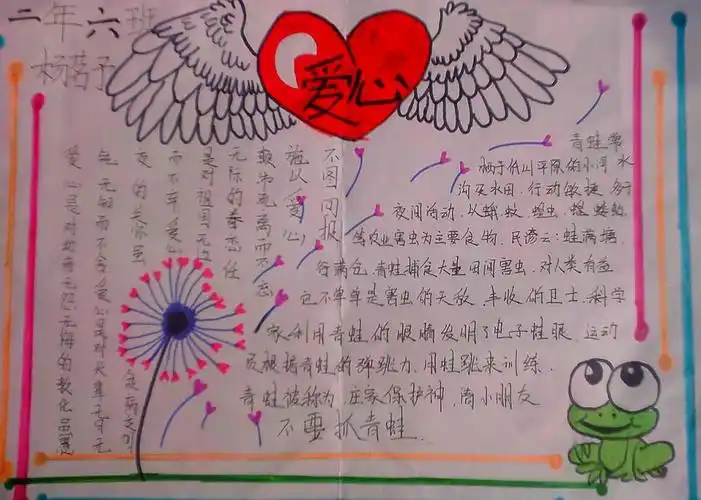 二年六班
杨茗予
爱心
不图回报
施以爱心
颓市危离而不忘
无际的眷恋任
是对祖国无边
而不弃爱心
爱的关怀虽
爱心是对幼雨无怨无悔的教化虽愚
青蛙常
栖于低山平原的小河水
沟及水田,行动敏捷多于
夜间向动.以蛾,蚊,蝗虫,
等农业害虫为主要食物.民谚云:蛙满塘,
谷满仓.青蛙捕食大量田间害虫,对人类有益
它不单单是害虫的天敌.丰收的卫士,科学
家利用青蛙的眼睛发明了电子蛙眼.运动
员根据青蛙的弹跳力,用蛙跳来训练.
青蛙被称为,庄家保护神,简小朋友
不要抓青蛙.